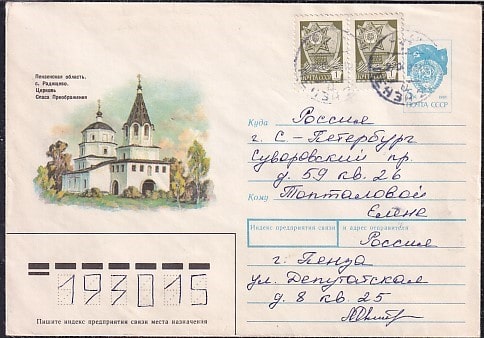 Пензенская область.
с. Радищево.
Церковь
Спаса Преображения
1к
ПОЧТА СССР
1к
ПОЧТА СССР
ПОЧТА СССР
Куда Россия
г. С-Петербург
Суворовский пр.
д. 59 кв. 26
Кому Топталовой
Елене
Индекс предприятия связи и адрес отправителя
Россия
г. Пенза
ул. Депутатская
д. 8 кв. 25
193015
Пишите индекс предприятия связи места назначения